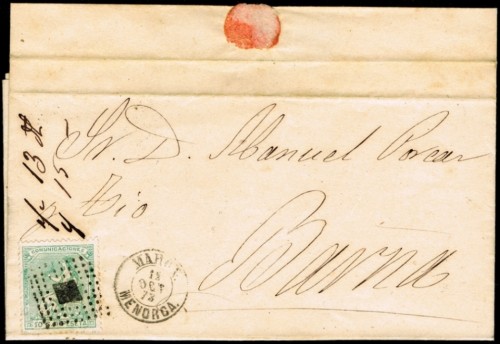 Sr. D. Manuel Porcar
y Tío
Barna
13
15
COMUNICACIONES
MAHON
MENORCA